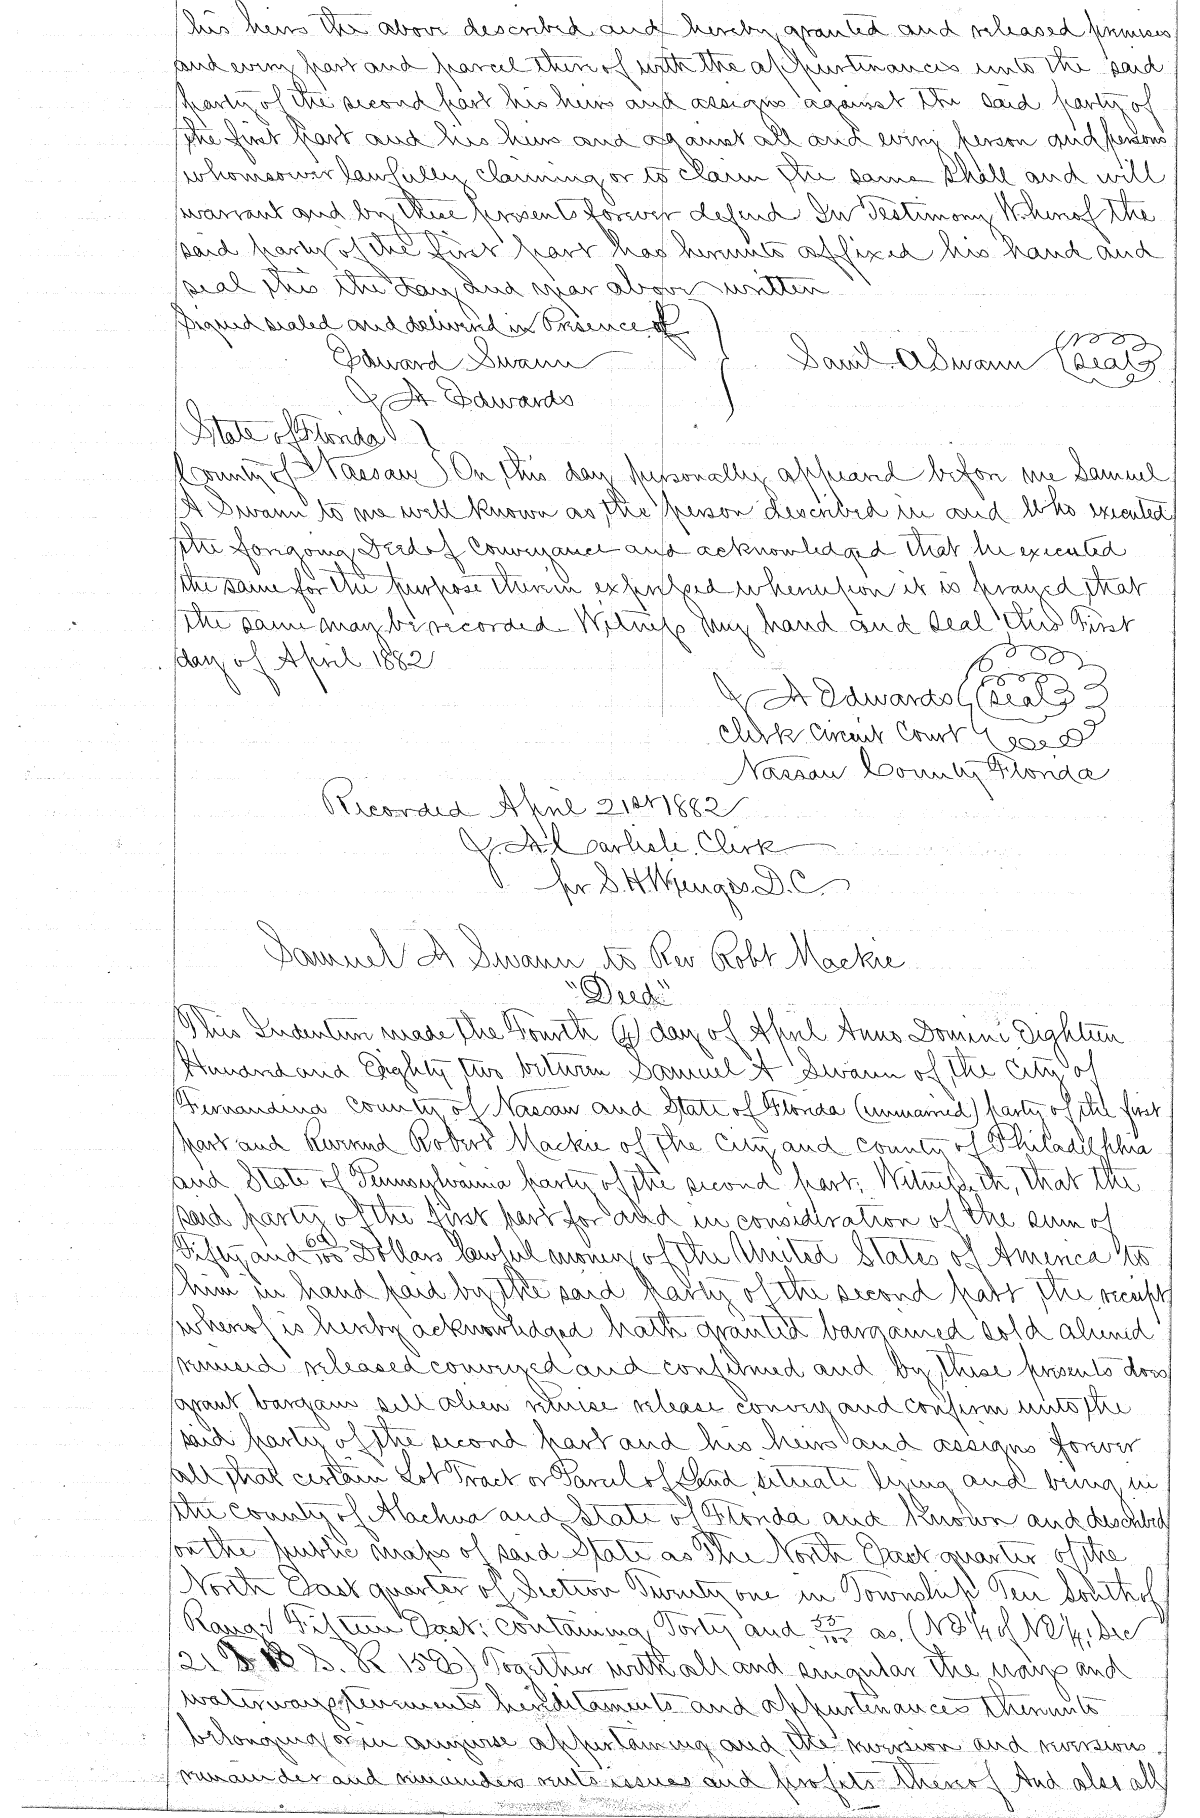 his heirs the above described and hereby granted and released premises
and every part and parcel thereof with the appurtenances unto the said
party of the second part his heirs and assigns against the said party of
the first part and his heirs and against all and every person and persons
whomsoever lawfully claiming or to claim the same shall and will
warrant and by these presents forever defend In Testimony Whereof the
said party of the first part has hereunto affixed his hand and
seal this the day and year above written
Signed sealed and delivered in Presence of
Edward Swann
Saml. A Swann (seal)
J A Edwards
State of Florida
County of Nassau } On this day personally appeared before me Samuel
A Swann to me well known as the person described in and Who executed
the foregoing Deed of Conveyance and acknowledged that he executed
the same for the purpose therein expressed whereupon it is prayed that
the same may be recorded Witness my hand and seal this First
day of April 1882
J A Edwards (seal)
Clerk Circuit Court
Nassau County Florida
Recorded April 21st 1882
J. A. Carlisle. Clerk
pr S. H. D.C.
Samuel A Swann to Rev Robt Mackie
"Deed"
This Indenture made the Fourth (4) day of April Anno Domini Eighteen
Hundred and Eighty two between Samuel A Swann of the City of
Fernandina County of Nassau and State of Florida (unmarried) party of the first
part and Reverend Robert Mackie of the City and County of Philadelphia
and State of Pennsylvania party of the second part; Witnesseth, that the
said party of the first part for and in consideration of the sum of
Fifty and /100 Dollars lawful money of the United States of America to
him in hand paid by the said party of the second part the receipt
whereof is hereby acknowledged hath granted bargained sold aliened
remised released conveyed and confirmed and by these presents does
grant bargain sell alien remise release convey and confirm unto the
said party of the second part and his heirs and assigns forever
all that certain Lot Tract or Parcel of Land, situate lying and being in
the County of Alachua and State of Florida and Known and described
on the public maps of said State as The North East quarter of the
North East quarter of Section Twenty one in Township Ten South of
Range Fifteen East; containing Forty and 53/100 as. (NE 1/4 of NE 1/4; Sec
21 S. R 15 E) Together with all and singular the ways and
waterways tenements hereditaments and appurtenances thereunto
belonging or in anywise appertaining and the reversion and reversions
remainder and remainders rents issues and profits thereof And also all